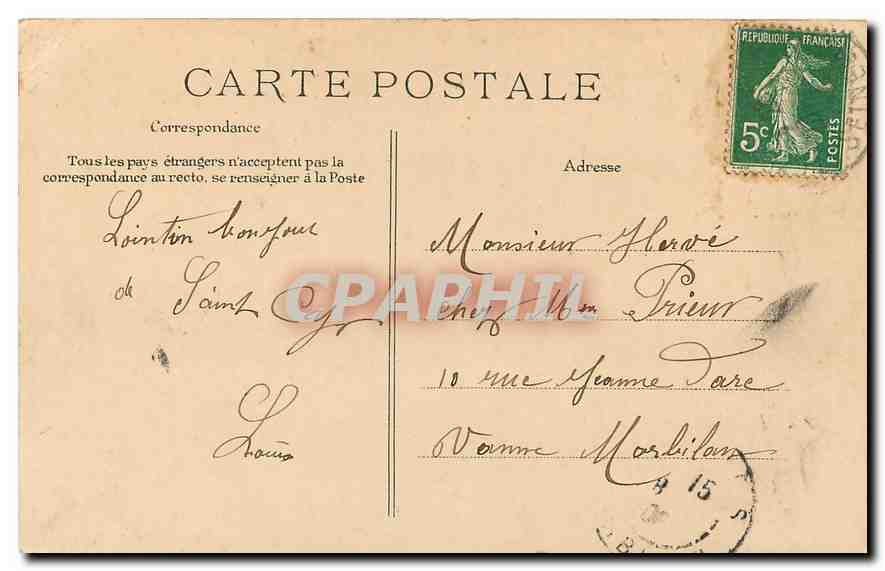 CARTE POSTALE
Correspondance
Tous les pays étrangers n'acceptent pas la
correspondance au recto, se renseigner à la Poste
Adresse
REPUBLIQUE FRANÇAISE
5c
POSTES
Lointin bonjour
de Saint Cyr
Louis
Monsieur Hervé
chez Mon Prieur
10 rue Jeanne Darc
Vanne Morbilan
CPAPHIL
8 15